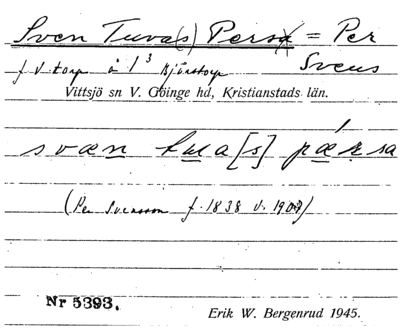 Sven Tuva(s) Persa = Per
Svens
f. d. torp å 1³ Bjärstorp
Vittsjö sn V. Göinge hd, Kristianstads län.
svæn tua[s] pǽrsa
(Per Svensson f. 1838 d. 1907)
Nr 5393.
Erik W. Bergenrud 1945.